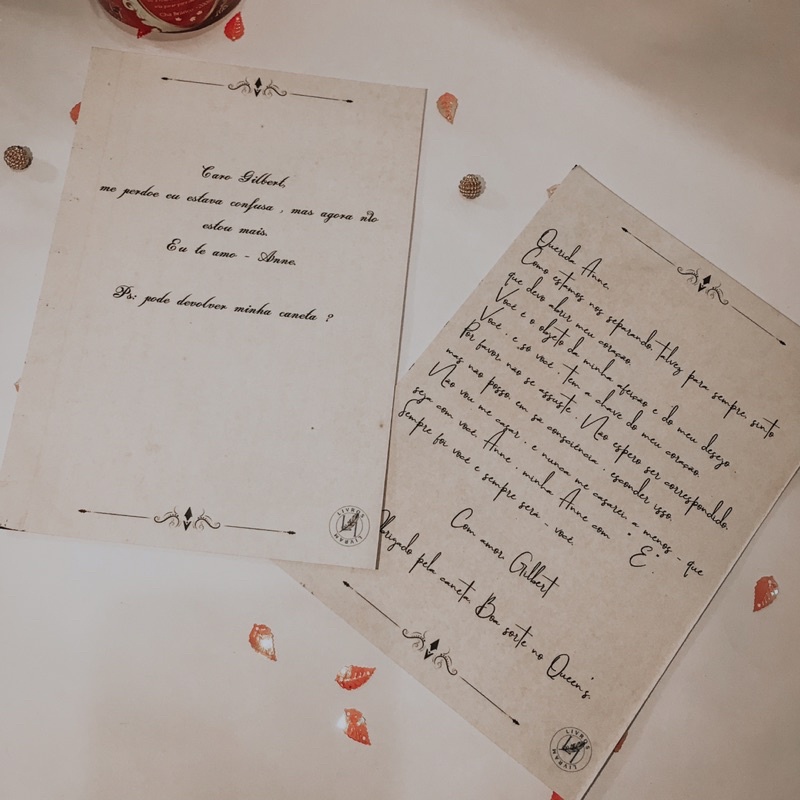 Caro Gilbert,
me perdoe eu estava confusa , mas agora não
estou mais.
Eu te amo - Anne.
Ps: pode devolver minha caneta ?
LIVROS
LIVRAM
Querida Anne,
Como estamos nos separando, talvez para sempre, sinto
que devo abrir meu coração.
Você é o objeto da minha afeição e do meu desejo.
Você, e só você, tem a chave do meu coração.
Por favor não se assuste. Não espero ser correspondido,
mas não posso, em sã consciência, esconder isso.
Não vou me casar, e nunca me casarei a menos - que
seja com você, Anne, minha Anne com "E".
Sempre foi você e sempre será - você.
Com amor Gilbert
Obrigado pela caneta. Boa sorte no Queen's.
LIVROS
LIVRAM